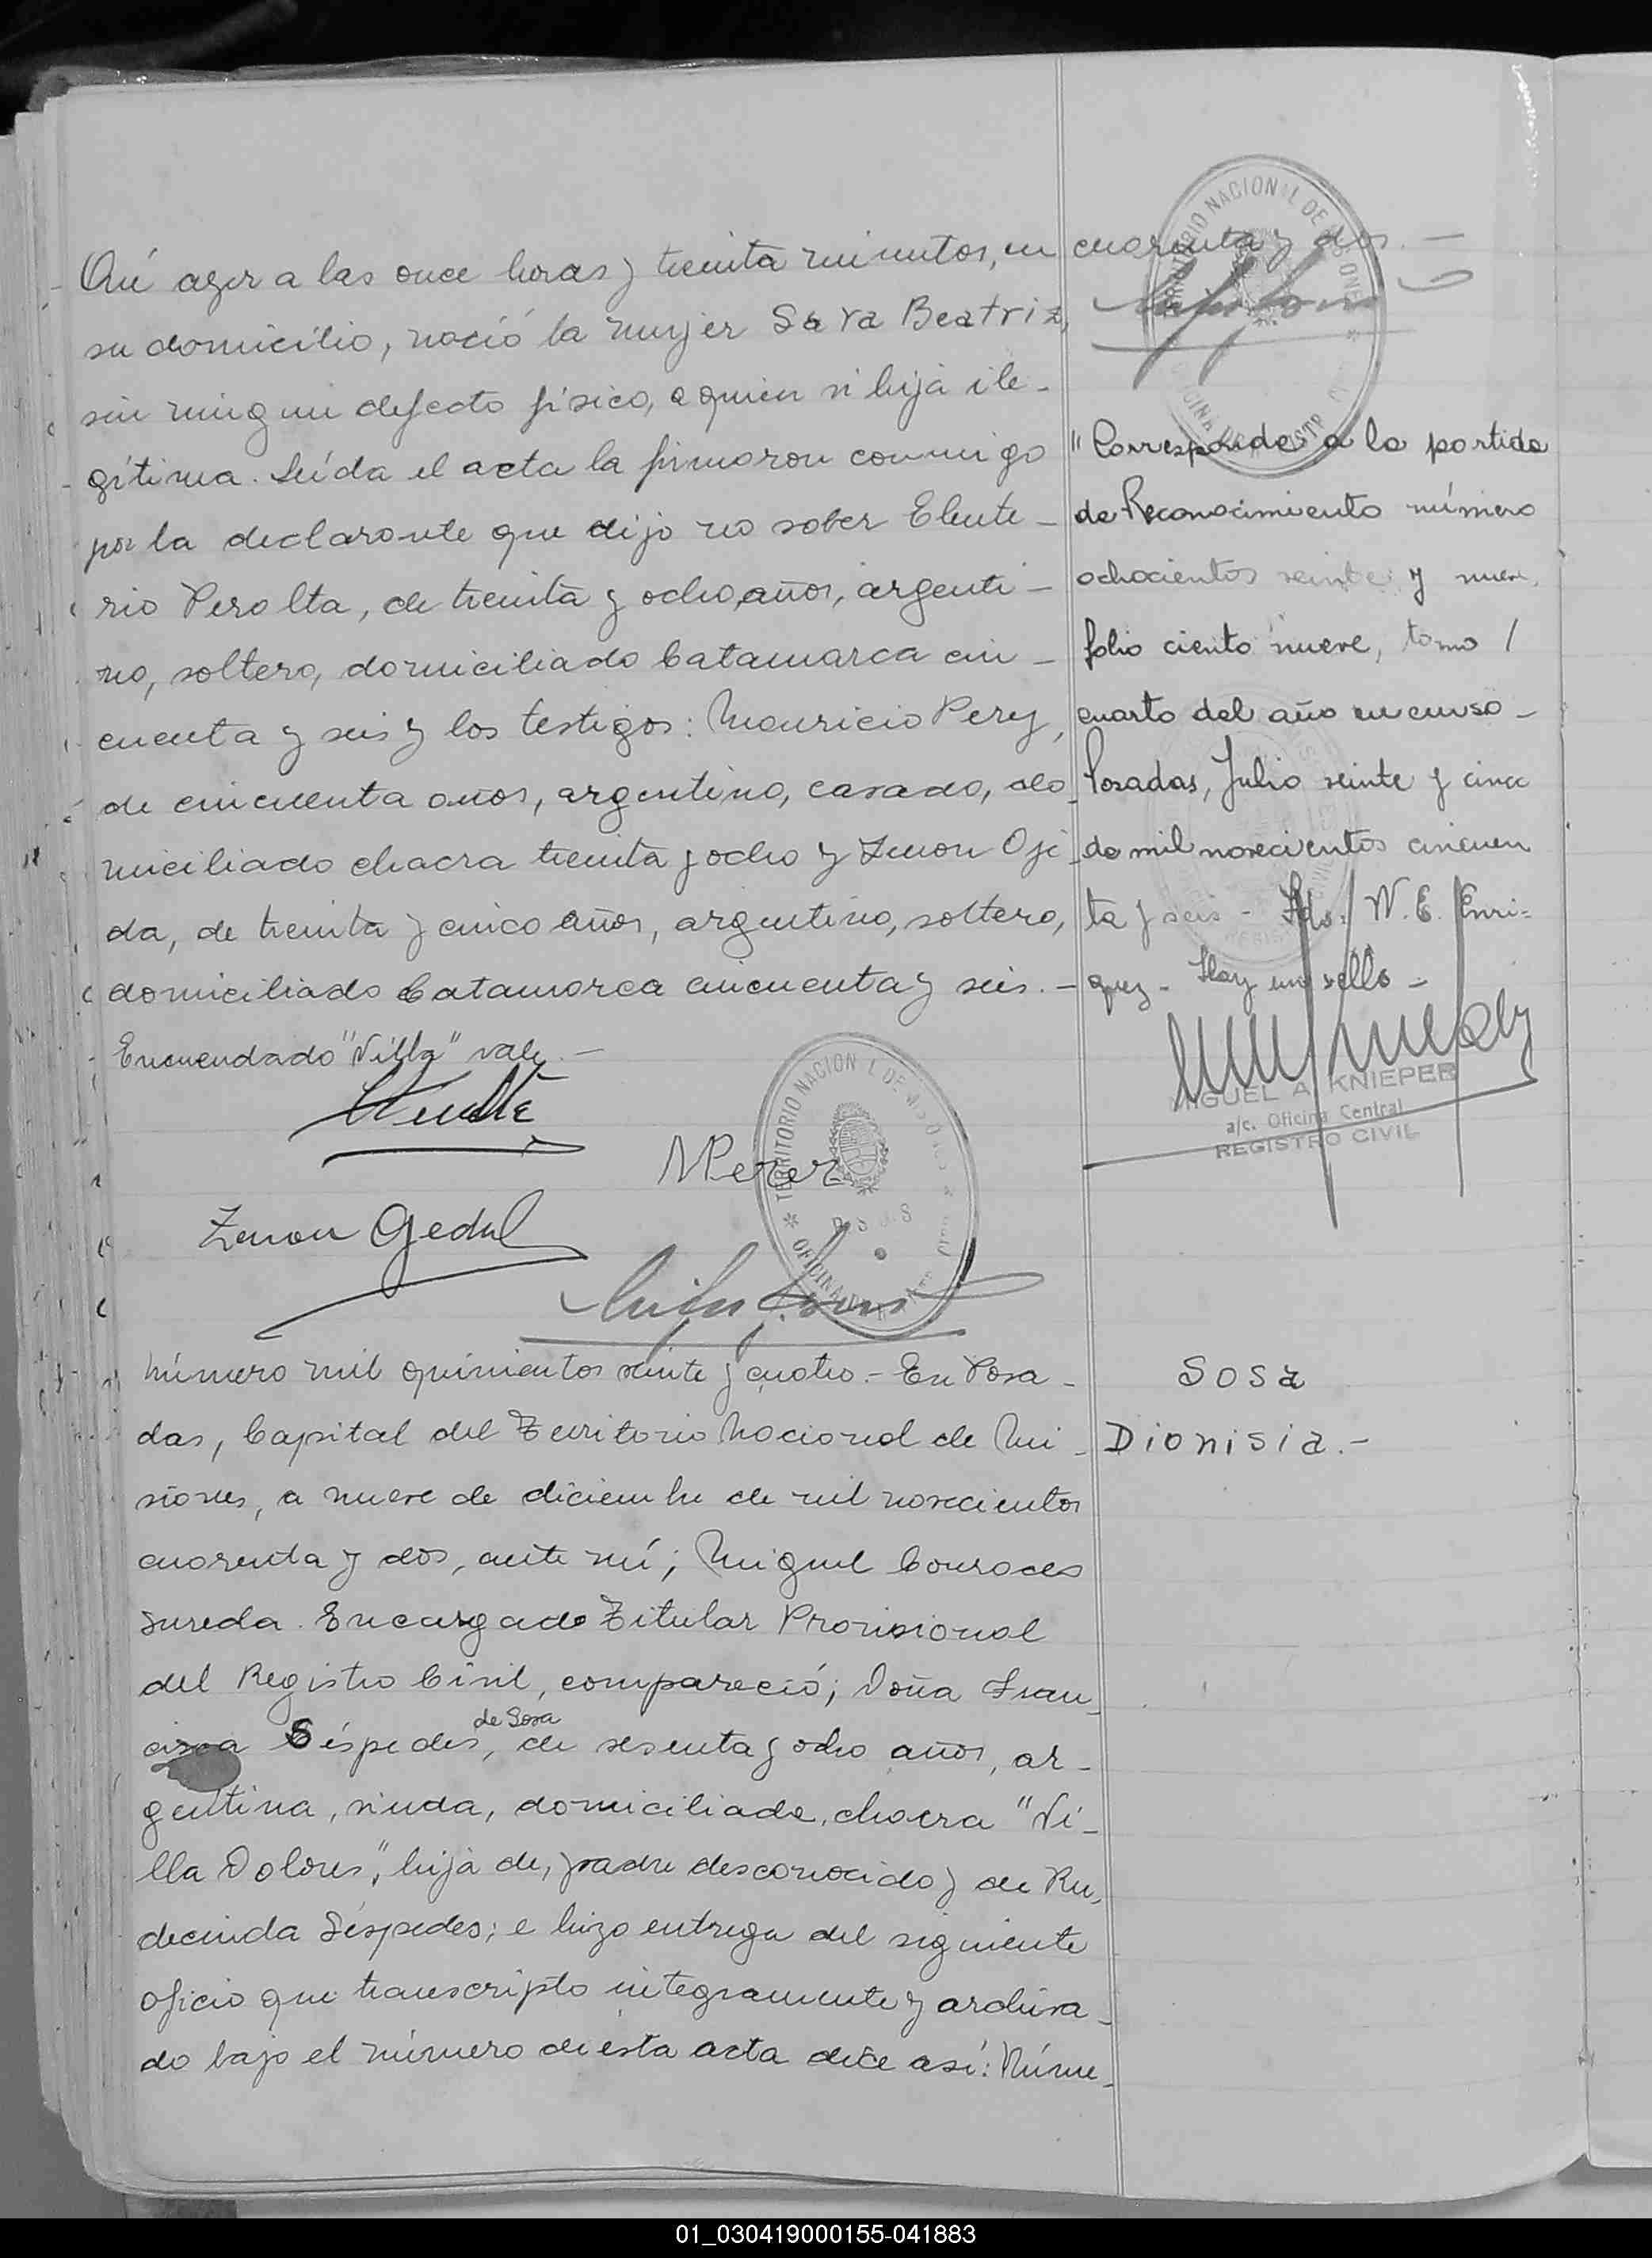 Qué ayer a las once horas y treinta minutos, en
su domicilio, nació la mujer Sara Beatriz,
sin ningun defecto físico, a quien vi hija ile-
gítima. Leída el acta la firmaron conmigo
por la declarante que dijo no saber Eleute-
rio Peralta, de treinta y ocho años, argenti-
no, soltero, domiciliado Catamarca cin-
cuenta y seis y los testigos: Mauricio Perez,
de cincuenta años, argentino, casado, do-
miciliado chacra treinta y ocho y Zenon Oje-
da, de treinta y cinco años, argentino, soltero,
domiciliado Catamarca cincuenta y seis.-
Enmendado "Villa" vale.-
MPerez
Zenon Ojeda
TERRITORIO NACIONAL DE MISIONES
OFICINA
Número mil quinientos veinte y cuatro.- En Posa-
das, Capital del Territorio Nacional de Mi-
siones, a nueve de diciembre de mil novecientos
cuarenta y dos, ante mí; Miguel
Sureda. Encargado Titular Provisional
del Registro Civil, compareció; Doña Fran-
cisca Céspedes, de Sosa, de sesenta y ocho años, ar-
gentina, viuda, domiciliada, chacra "Vi-
lla Dolores", hija de, padre desconocido y de Ru-
decinda Séspedes; e hizo entrega del siguiente
oficio que transcripto integramente y archiva-
do bajo el número de ésta acta dice así: Núme-
cuarenta y dos.-
TERRITORIO NACIONAL DE MISIONES
"Corresponde a la partida
de Reconocimiento número
ochocientos veinte y nueve,
folio ciento nueve, tomo
cuarto del año en curso-
Posadas, Julio veinte y cinco
de mil novecientos cincuen
ta y seis - Fdo: N. E. Enri-
quez- Hay un sello-
MIGUEL A. KNIEPER
a/c. Oficina Central
REGISTRO CIVIL
Sosa
Dionisia.-
01_030419000155-041883